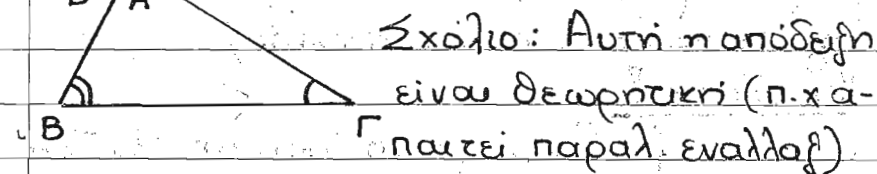 Α
Σχόλιο: Αυτή η απόδειξη
είναι θεωρητική (π.χ α-
Β Γ παιτεί παραλ. εναλλαξ)